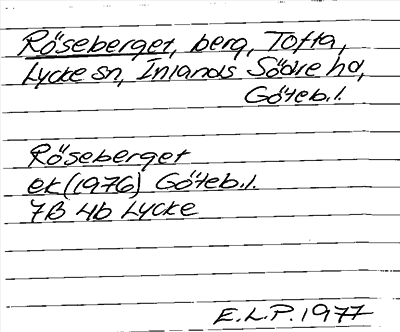 Röseberget, berg, Tofta,
Lycke sn, Inlands Södre hd,
Göteb.l.
Röseberget
ek (1976) Göteb.l.
7B 4b Lycke
E.L.P. 1977